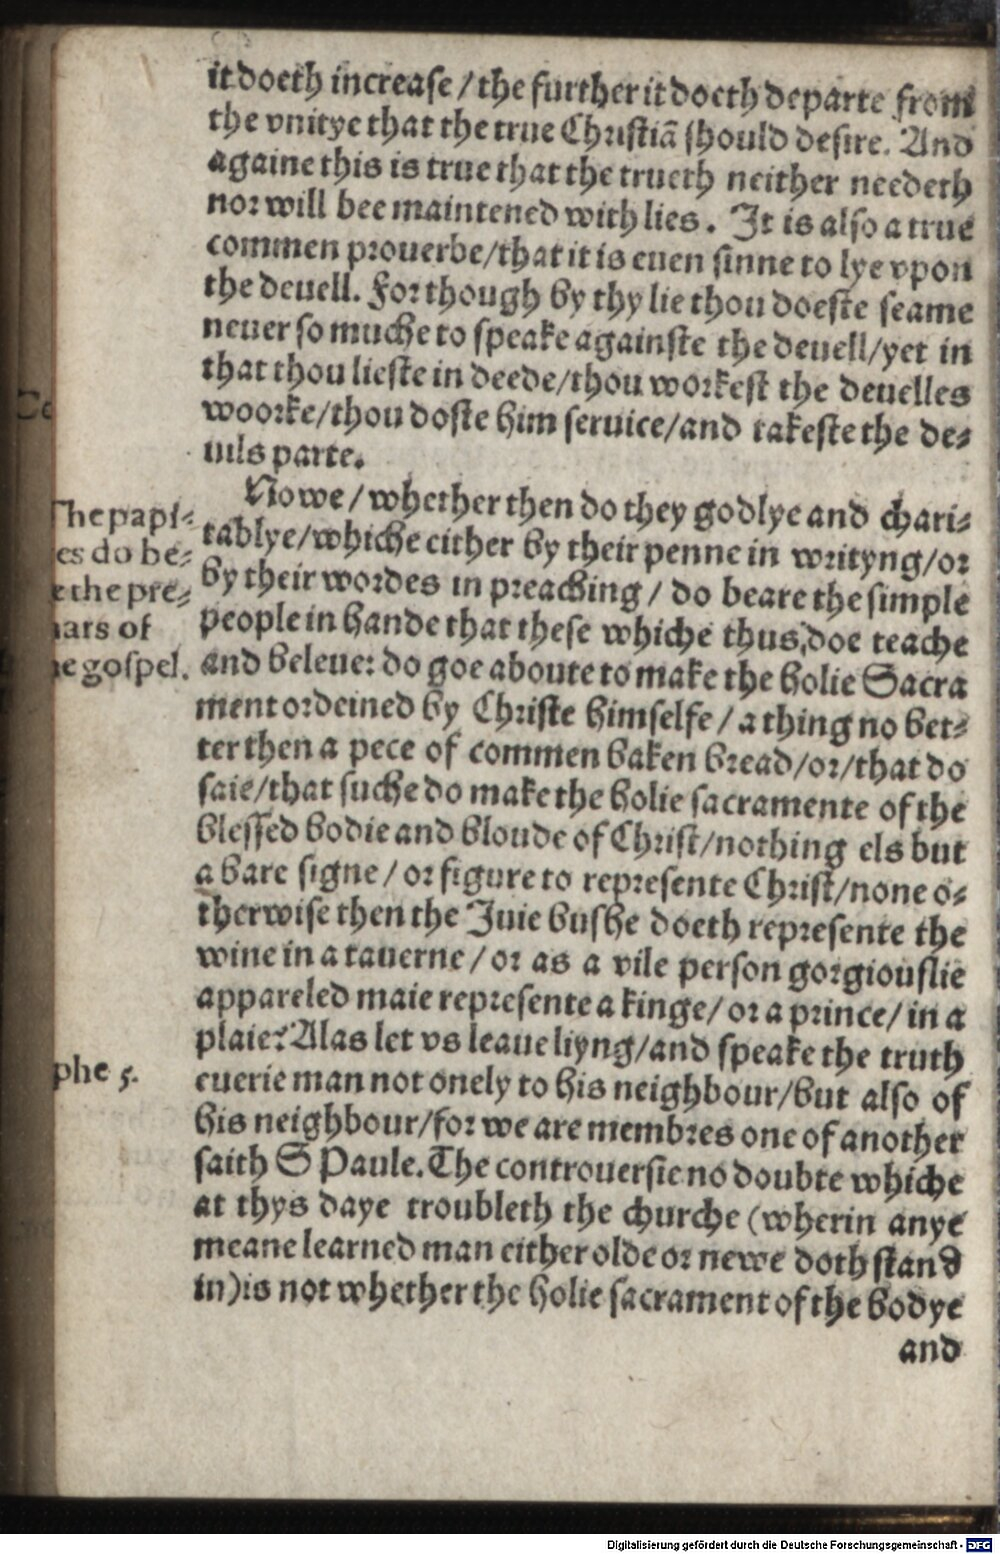 it doeth increase/the further it doeth departe from
the vnitye that the true Christiā should desire. And
againe this is true that the trueth neither needeth
nor will bee maintened with lies. It is also a true
commen prouerbe/that it is euen sinne to lye vpon
the deuell. For though by thy lie thou doeste seame
neuer so muche to speake againste the deuell/yet in
that thou lieste in deede/thou workest the deuelles
woorke/thou doste him seruice/and takeste the de⸗
uils parte.
Nowe/whether then do they godlye and chari⸗
tablye/whiche either by their penne in writyng/or
by their wordes in preaching/ do beare the simple
people in hande that these whiche thus doe teache
and beleue: do goe aboute to make the holie Sacra
ment ordeined by Christe himselfe/a thing no bet⸗
ter then a pece of commen baken bread/or/that do
saie/that suche do make the holie sacramente of the
blessed bodie and bloude of Christ/nothing els but
a bare signe/or figure to represente Christ/none o⸗
therwise then the Iuie bushe doeth represente the
wine in a tauerne/or as a vile person gorgiouslie
appareled maie represente a kinge/or a prince/in a
plaie? Alas let vs leaue liyng/and speake the truth
euerie man not onely to his neighbour/but also of
his neighbour/for we are membres one of another
saith S Paule. The controuersie no doubte whiche
at thys daye troubleth the churche (wherin anye
meane learned man either olde or newe doth stand
in) is not whether the holie sacrament of the bodye
and
The papi⸗
es do be⸗
e the pre⸗
hars of
he gospel.
phe 5.
Digitalisierung gefördert durch die Deutsche Forschungsgemeinschaft - DFG